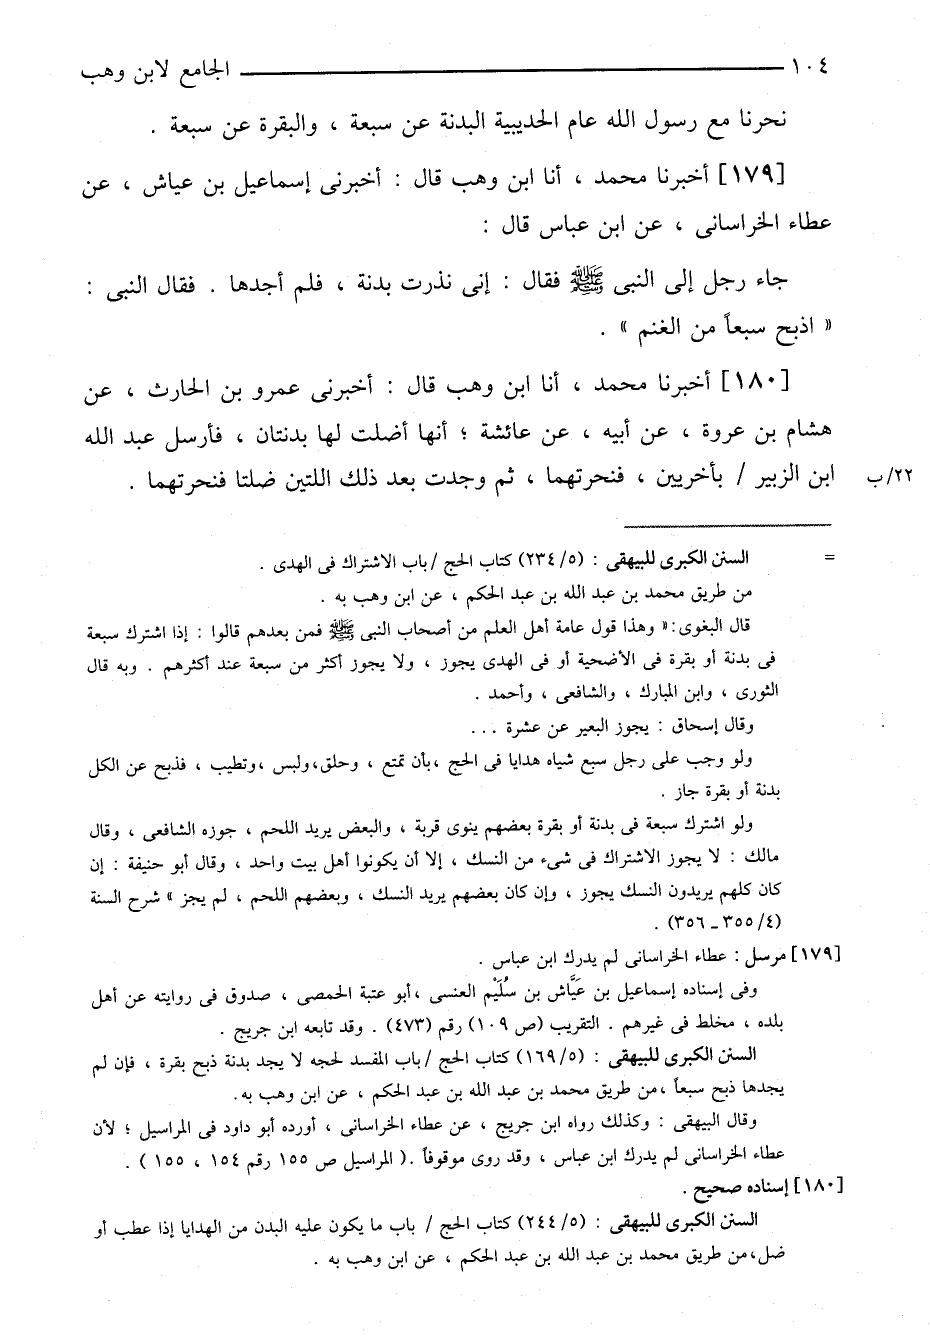 ١٠٤ ــــــــــــــــــــــــــــــــ الجامع لابن وهب
نحرنا مع رسول الله عام الحديبية البدنة عن سبعة ، والبقرة عن سبعة .
[١٧٩] أخبرنا محمد ، أنا ابن وهب قال : أخبرنى إسماعيل بن عياش ، عن
عطاء الخراسانى ، عن ابن عباس قال :
جاء رجل إلى النبى ﷺ فقال : إنى نذرت بدنة ، فلم أجدها . فقال النبى :
« اذبح سبعاً من الغنم » .
[١٨٠] أخبرنا محمد ، أنا ابن وهب قال : أخبرنى عمرو بن الحارث ، عن
هشام بن عروة ، عن أبيه ، عن عائشة ؛ أنها أضلت لها بدنتان ، فأرسل عبد الله
ابن الزبير / بأخريين ، فنحرتهما ، ثم وجدت بعد ذلك اللتين ضلتا فنحرتهما . ٢٢/ب
= السنن الكبرى للبيهقى : (٥/ ٢٣٤) كتاب الحج / باب الاشتراك فى الهدى .
من طريق محمد بن عبد الله بن عبد الحكم ، عن ابن وهب به .
قال البغوى: « وهذا قول عامة أهل العلم من أصحاب النبى ﷺ فمن بعدهم قالوا : إذا اشترك سبعة
فى بدنة أو بقرة فى الأضحية أو فى الهدى يجوز ، ولا يجوز أكثر من سبعة عند أكثرهم . وبه قال
الثورى ، وابن المبارك ، والشافعى ، وأحمد .
وقال إسحاق : يجوز البعير عن عشرة ...
ولو وجب على رجل سبع شياه هدايا فى الحج ،بأن تمتع ، وحلق،ولبس ،وتطيب ، فذبح عن الكل
بدنة أو بقرة جاز .
ولو اشترك سبعة فى بدنة أو بقرة بعضهم ينوى قربة ، والبعض يريد اللحم ، جوزه الشافعى ، وقال
مالك : لا يجوز الاشتراك فى شىء من النسك ، إلا أن يكونوا أهل بيت واحد ، وقال أبو حنيفة : إن
كان كلهم يريدون النسك يجوز ، وإن كان بعضهم يريد النسك ، وبعضهم اللحم ، لم يجز » شرح السنة
(٤/ ٣٥٥ ـ ٣٥٦) .
[١٧٩] مرسل : عطاء الخراسانى لم يدرك ابن عباس .
وفى إسناده إسماعيل بن عَيَّاش بن سُلَيْم العنسى ،أبو عتبة الحمصى ، صدوق فى روايته عن أهل
بلده ، مخلط فى غيرهم . التقريب (ص ١٠٩) رقم (٤٧٣) . وقد تابعه ابن جريج .
السنن الكبرى للبيهقى : (٥/ ١٦٩) كتاب الحج / باب المفسد لحجه لا يجد بدنة ذبح بقرة ، فإن لم
يجدها ذبح سبعاً ،من طريق محمد بن عبد الله بن عبد الحكم ، عن ابن وهب به.
وقال البيهقى : وكذلك رواه ابن جريج ، عن عطاء الخراسانى ، أورده أبو داود فى المراسيل ؛ لأن
عطاء الخراسانى لم يدرك ابن عباس ، وقد روى موقوفاً .( المراسيل ص ١٥٥ رقم ١٥٤ ، ١٥٥ ) .
[١٨٠] إسناده صحيح .
السنن الكبرى للبيهقى : (٥/ ٢٤٤) كتاب الحج / باب ما يكون عليه البدل من الهدايا إذا عطب أو
ضل،من طريق محمد بن عبد الله بن عبد الحكم ، عن ابن وهب به .